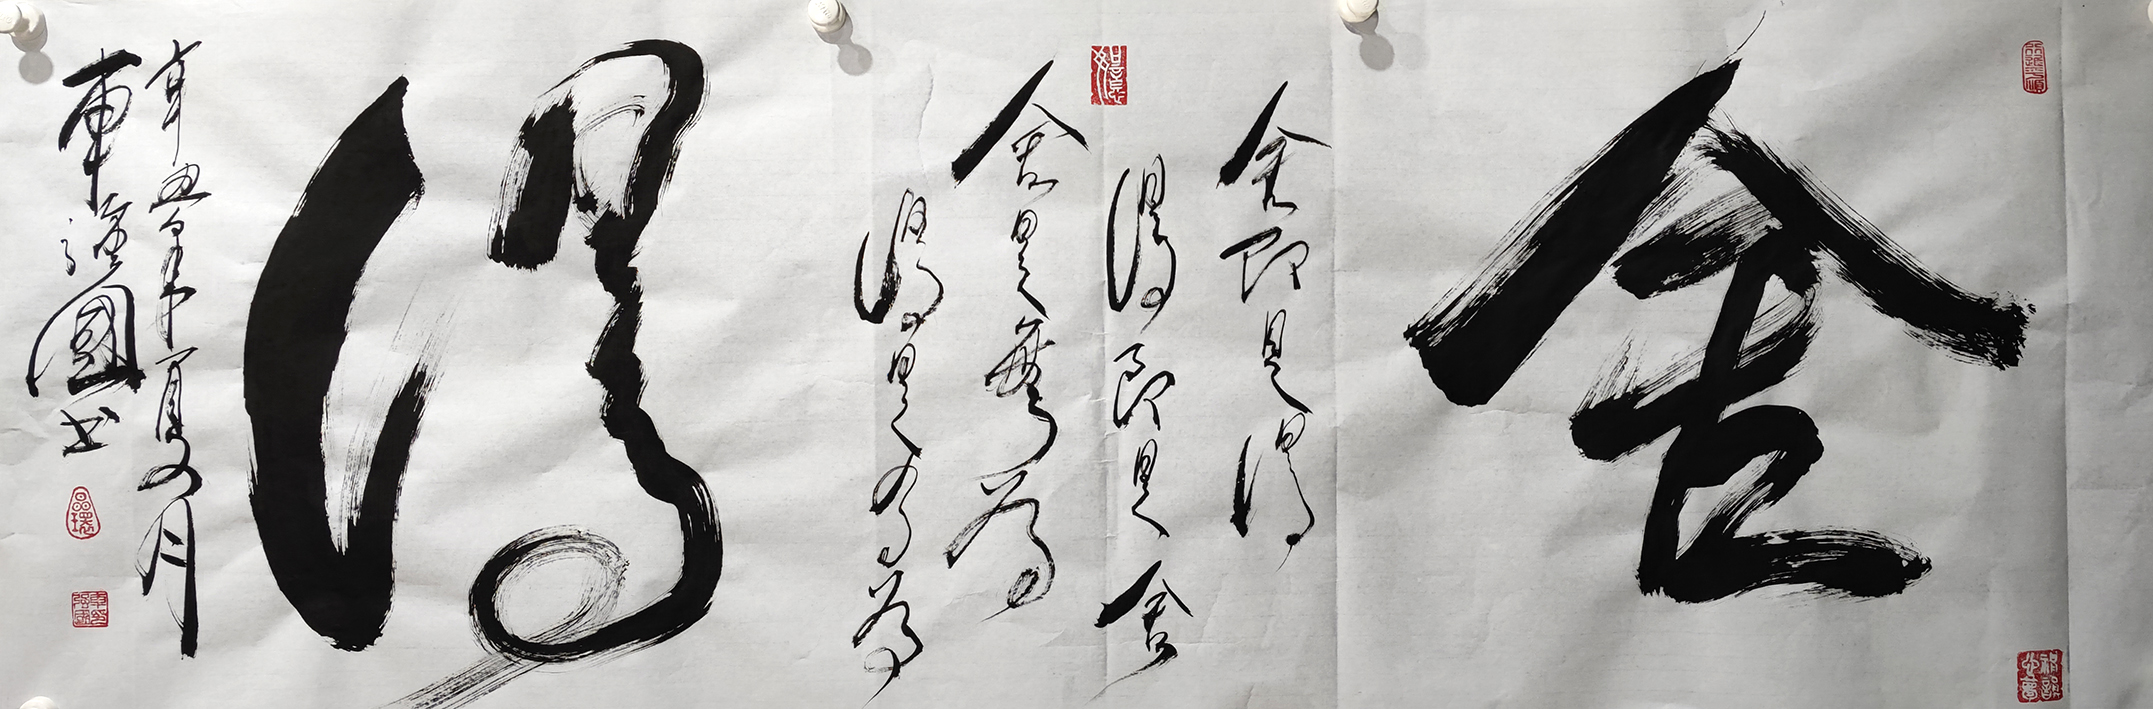 舍
舍即是得
得即是舍
舍是無為
得是有為
得
辛丑年夏月
車強國書